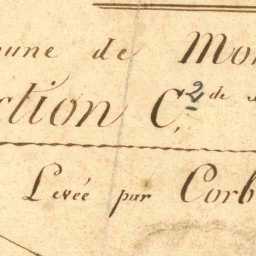 mune de Mo
ction C. 2 de
Levée par Corb